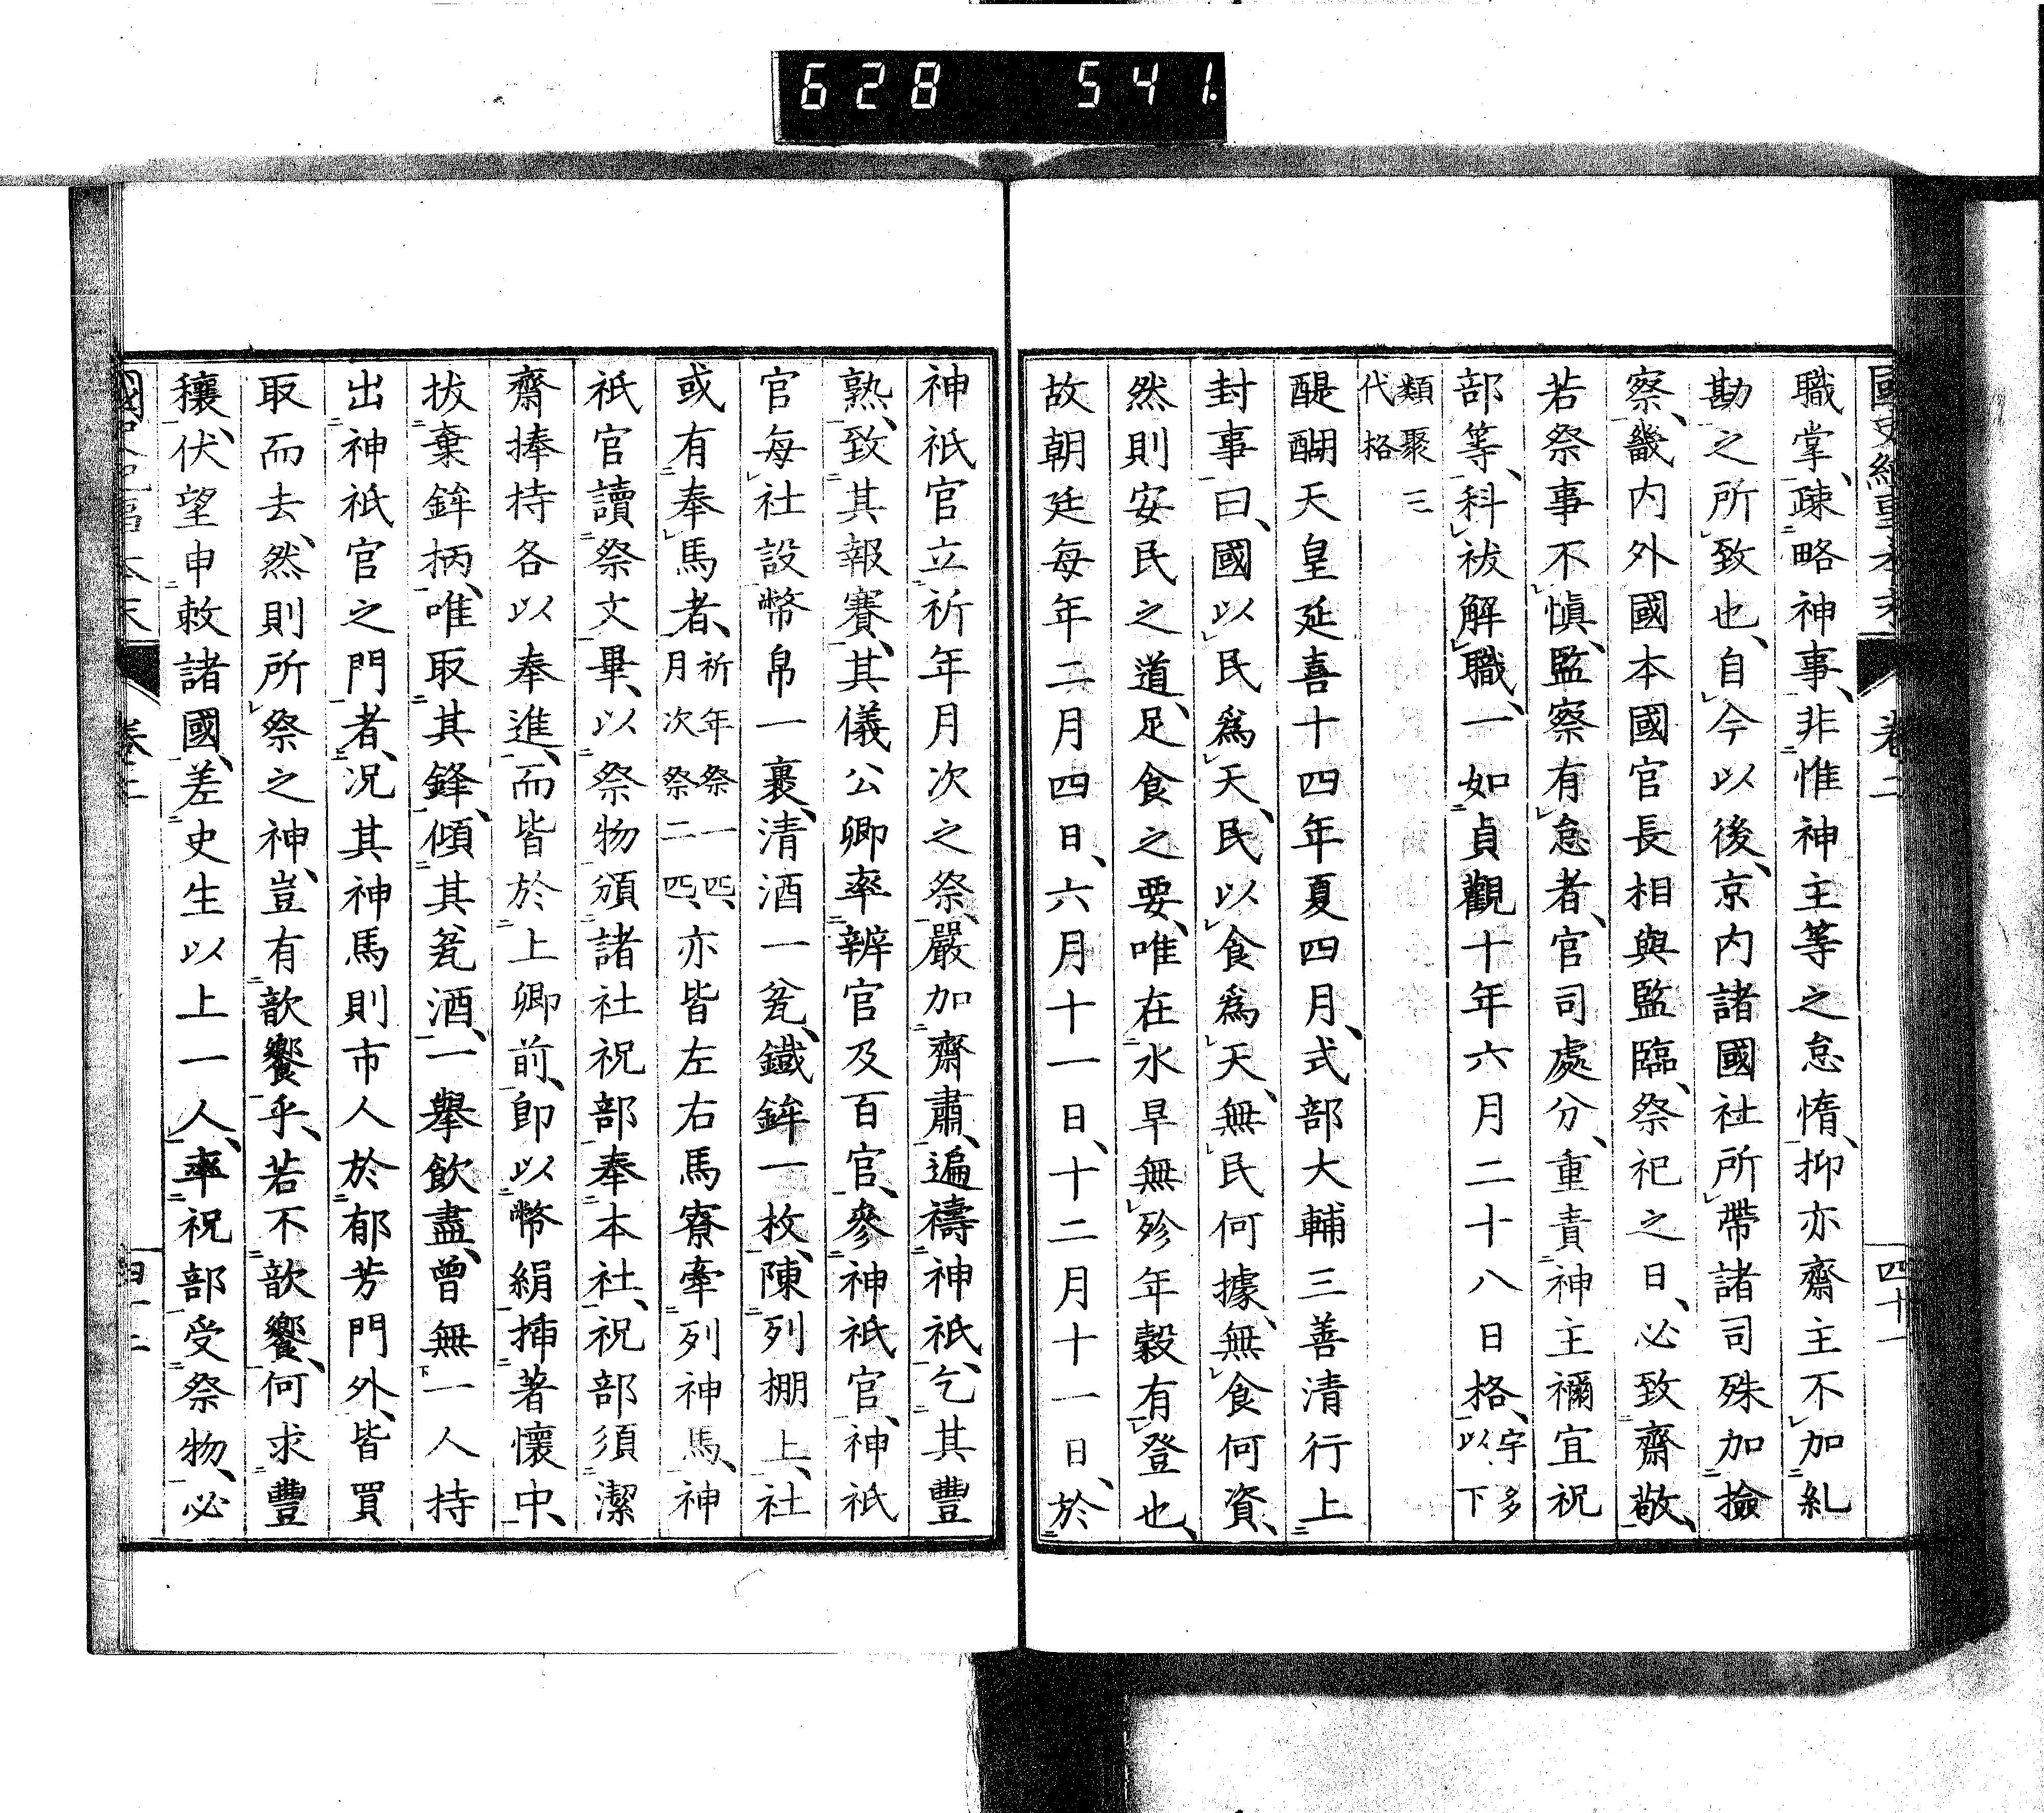 628 541.
國史紀事本末 卷二 四十一
職掌、疎略神事、非惟神主等之怠惰、抑亦齋主不加糺
勘之所致也、自今以後、京内諸國社所帶諸司殊加撿
察、畿内外國本國官長相與監臨、祭祀之日、必致齋敬、
若祭事不愼、監察有怠者、官司處分、重責神主禰宜祝
部等、科祓解職、一如貞觀十年六月二十八日格、宇多以下
類聚三代格
醍醐天皇延喜十四年夏四月、式部大輔三善清行上
封事曰、國以民爲天、民以食爲天、無民何據、無食何資、
然則安民之道、足食之要、唯在水旱無殄年穀有登也、
故朝廷每年二月四日、六月十一日、十二月十一日、於
神祇官立祈年月次之祭、嚴加齋肅、遍禱神祇、乞其豐
熟、致其報賽、其儀公卿率辨官及百官、參神祇官、神祇
官每社設幣帛一裹、清酒一瓮、鐵鉾一枚、陳列棚上、社
或有奉馬者、祈年祭一匹、月次祭二匹、亦皆左右馬寮牽列神馬、神
祇官讀祭文畢、以祭物頒諸社祝部奉本社、祝部須潔
齋捧持各以奉進、而皆於上卿前、卽以幣絹挿著懷中、
拔棄鉾柄、唯取其鋒、傾其瓮酒、一擧飮盡、曾無一人持
出神祇官之門者、况其神馬則市人於郁芳門外、皆買
取而去、然則所祭之神、豈有歆饗乎、若不歆饗、何求豐
穰、伏望申敕諸國、差史生以上一人、率祝部受祭物、必
國史紀事本末 卷二 四十二